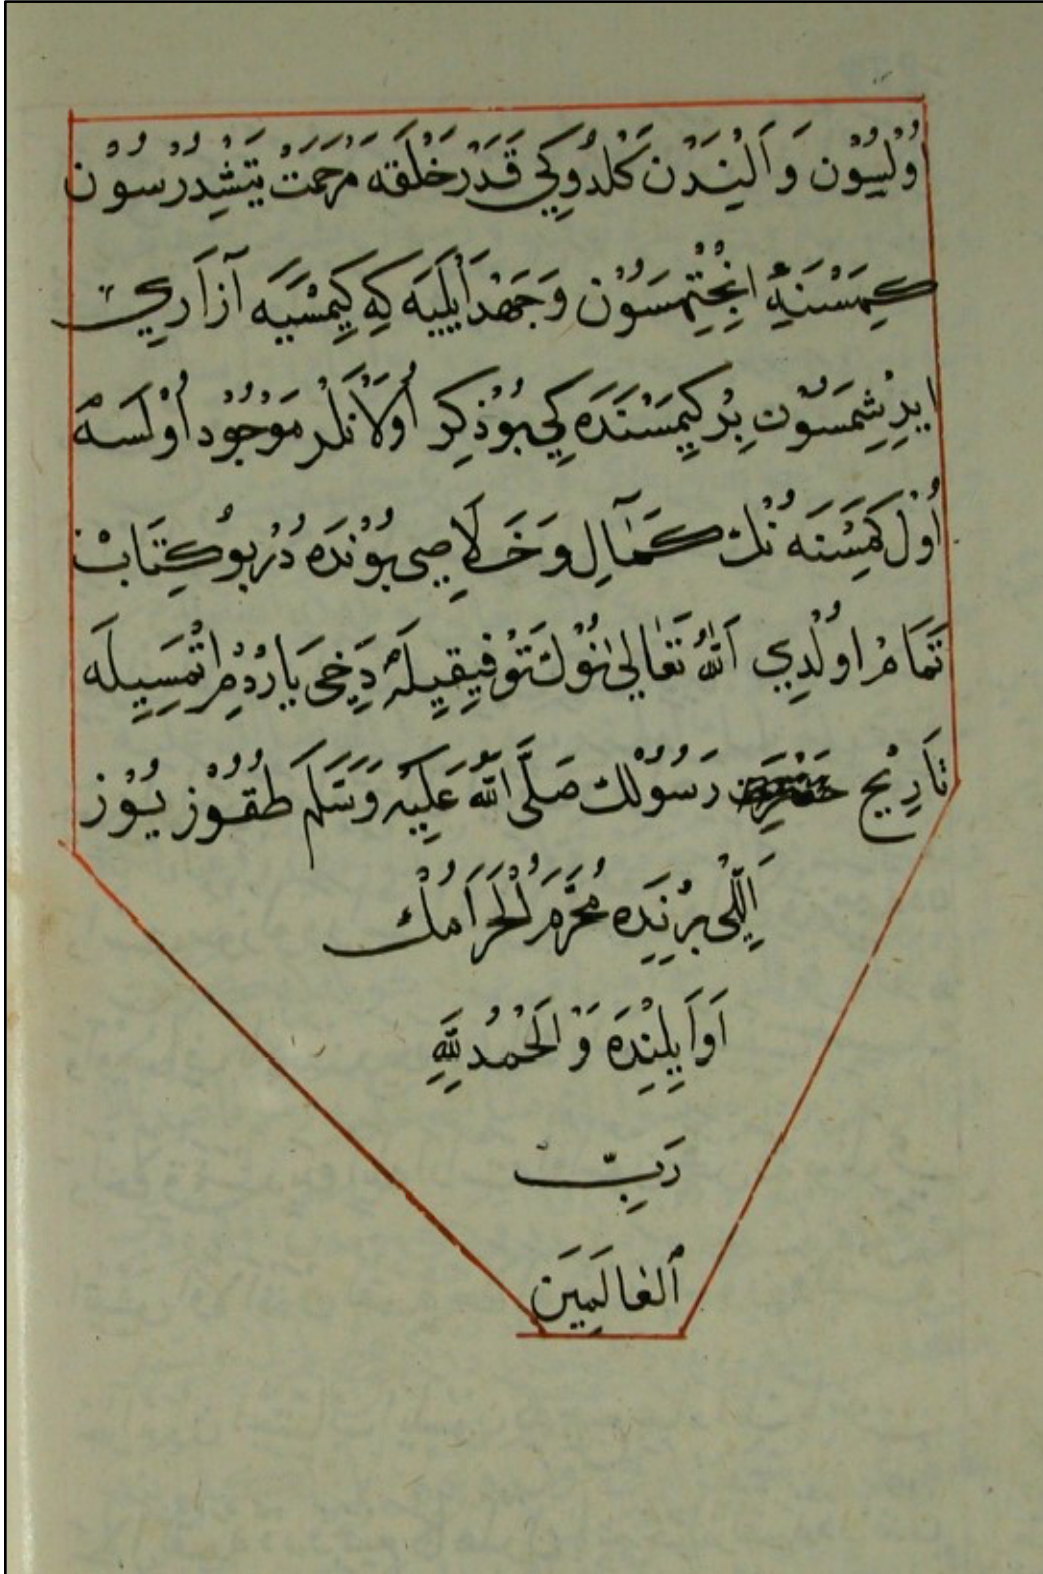 اُولْسُوْن وَاَلْنِدَنْ كَلْدُوكِي قَدَرْ خَلْقَه مَرْحَمَتْ يَتَشْدِرْسُوْن
كِمَسْنَهِٔ اِنْجِتْمَسُوْن وَجَهْدْ اَيْلَيَه كِه كِيمْسَيَه آزَارِي
ايرِشْمَسُوْن بِرْ كِيمَسْنَدَه كِي بُو ذِكِر اُولَانْلَرْ مَوْجُوْد اُوْلَسَه
اُوْل كِمَسْنَه نُكْ كَمَالِ وَخَلَاصِي بُوْنْدَه دُرْ بُو كِتَابْ
تَمَامْ اوُلْدِي اَللّٰه تَعَالٰى نُوْكْ تَوْفِيقِيلَه دَخِي يَارْدُمْ اِتْمَسِيلَه
تَارِيْخ رَسُوْلُكْ صَلَّى اللّٰهُ عَلَيْهِ وَسَلَّمَ طُقُوْز يُوْز
اَللّٖى بِرْنِدَه مُحَرَّمُ الْحَرَامُكْ
اَوَايِلِنْدَه وَالْحَمْدُ لِلّٰهِ
رَبِّ
اْلعَالَمِينَ